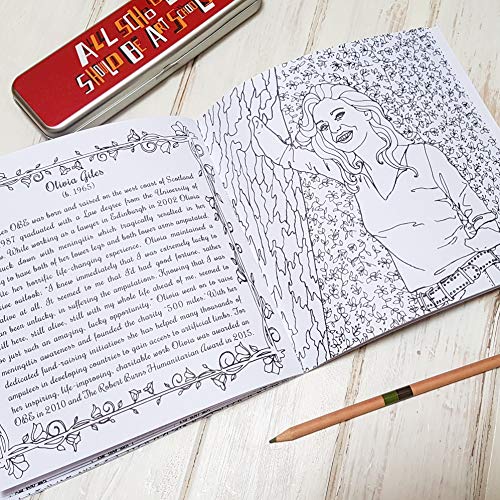 ALL SCHO
SHOULD BE ART SCHOO
Olivia Giles
(b. 1965)
OBE was born and raised on the west coast of Scotland
1987 graduated with a Law degree from the University of
While working as a lawyer in Edinburgh in 2002 Olivia
uck down with meningitis which tragically resulted in
ng to have both of her lower legs and both lower arms amputated.
te her horrific life-changing experience, Olivia maintained a
outlook: "I knew immediately that I was extremely lucky to
alive at all. It seemed to me that I'd had good fortune, rather
an been unlucky, in suffering the amputations. Knowing that I was
still here, still alive, still with my whole life ahead of me, seemed to
be just such an amazing, lucky opportunity." Olivia went on to raise
meningitis awareness and founded the charity '500 miles'. With her
dedicated fund-raising initiatives she has helped many thousands
of amputees in developing countries gain access to artificial limbs. For
her inspiring, life-improving, charitable work Olivia was awarded an
OBE in 2010 and The Robert Burns Humanitarian Award in 2015.